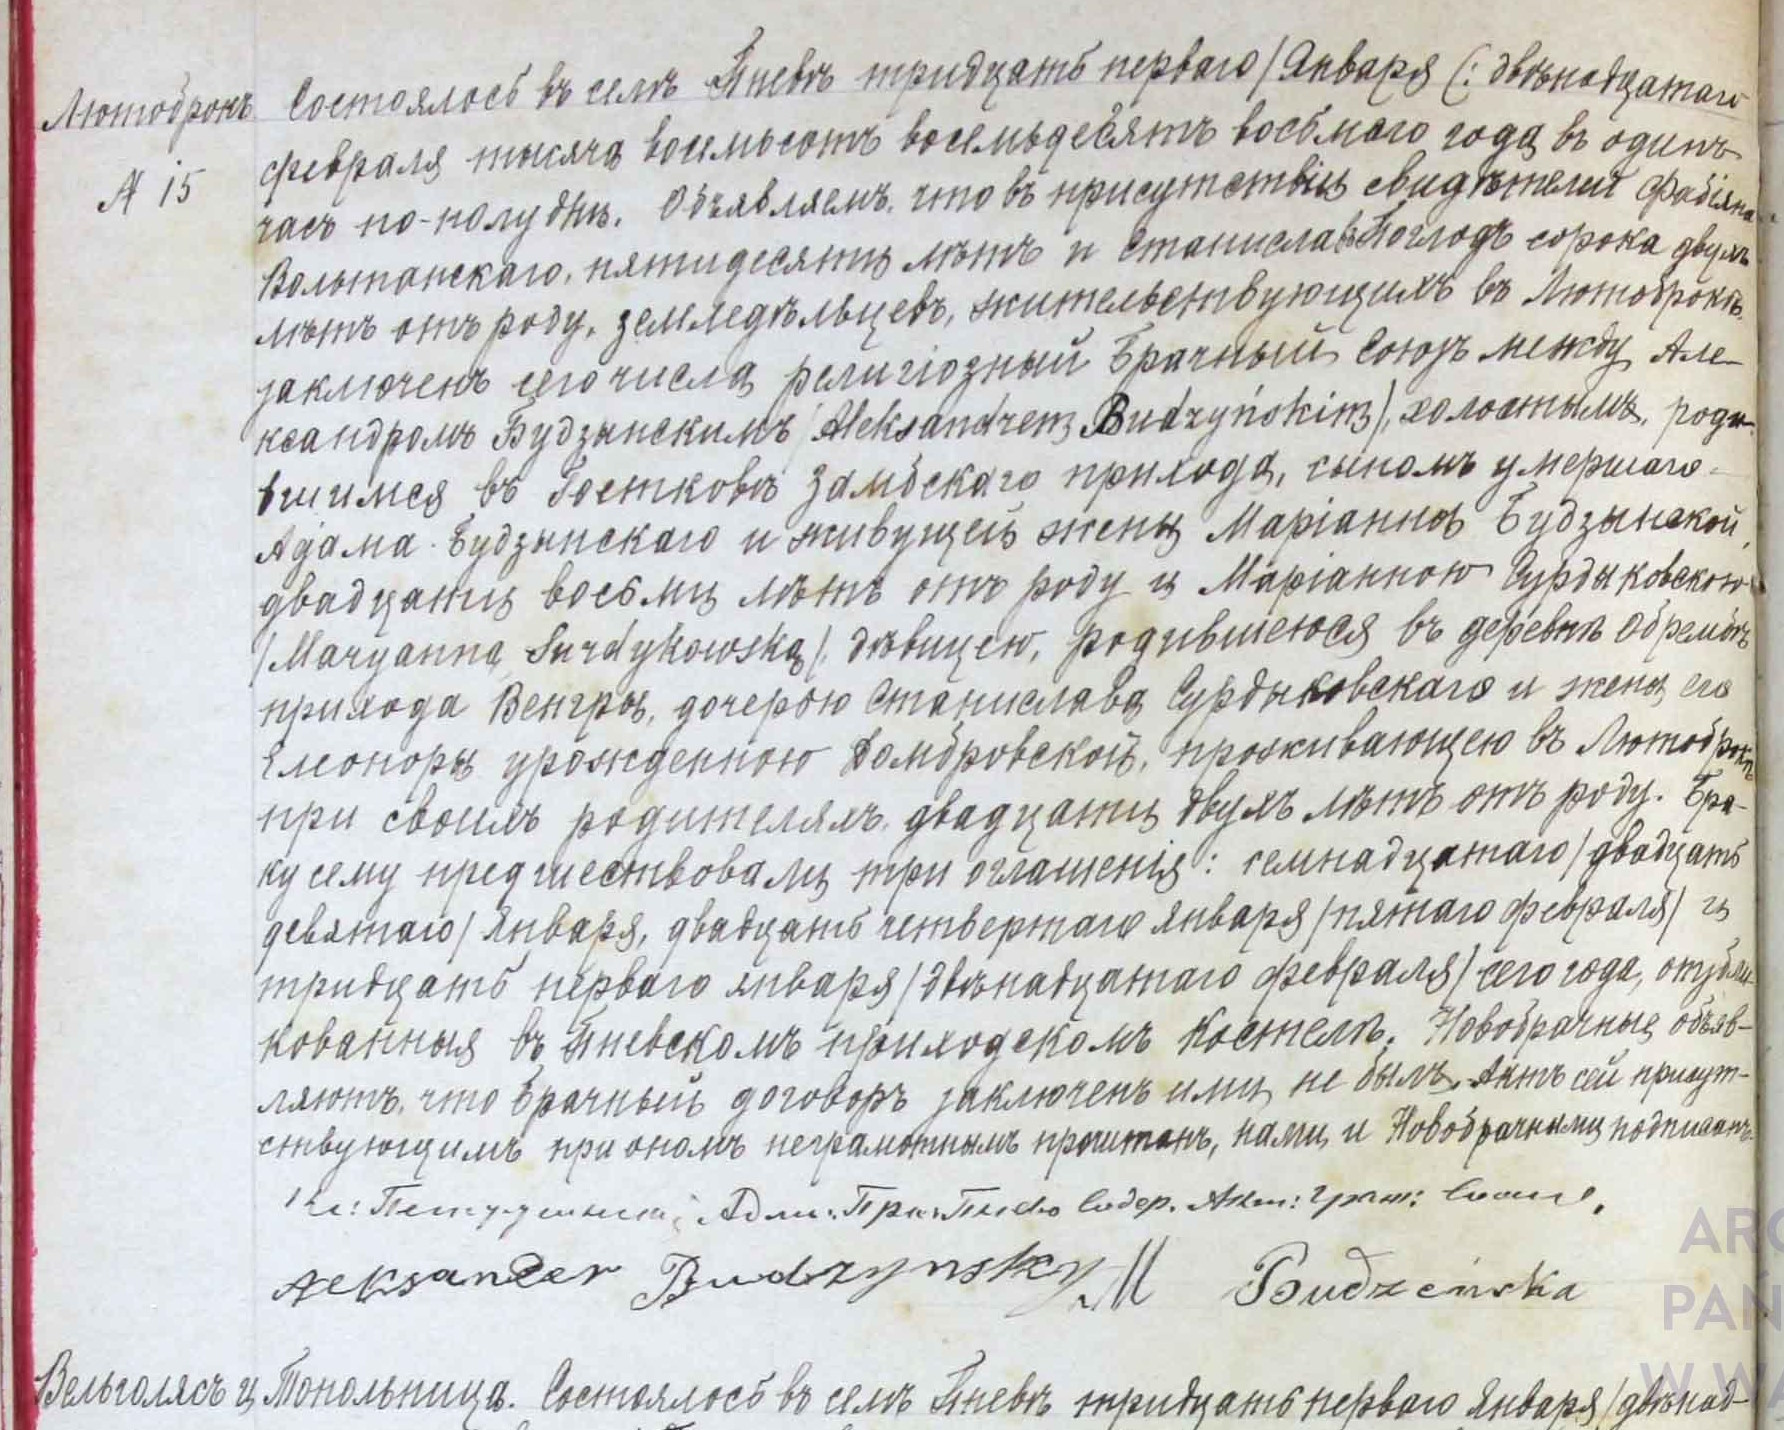 Лютоброкъ Состоялось въ селѣ Пневѣ тридцать перваго /Января (: двѣнадцатаго
№ 15
февраля тысяча восемьсотъ восемьдесятъ восьмаго года въ одинъ
часъ по-полудни. Объявляемъ, что въ присутствіи свидѣтелей Фабіяна
Вольтанскаго, пятидесяти лѣтъ и Станислава Поглодъ сорока двухъ
лѣтъ отъ роду, земледѣльцевъ, жительствующихъ въ Лютоброкѣ,
заключенъ сего числа религіозный Брачный Союзъ между Але-
ксандромъ Будзынскимъ /Aleksandrem Budzyńskim/, холостымъ, роди-
вшимся въ Госткове Замбскаго прихода, сыномъ умершаго
Адама Будзынскаго и живущей жены Маріанны Будзынской,
двадцати восьми лѣтъ отъ роду и Маріанною Сурдыковскою
/Maryanną Surdykowską/, дѣвицею, родившеюся въ деревнѣ Обрембъ
прихода Венгры, дочерью Станислава Сурдыковскаго и жены его
Елеоноры урожденною Домбровской, проживающею въ Лютоброкѣ
при своихъ родителяхъ, двадцати двухъ лѣтъ отъ роду. Бра-
ку сему предшествовали три оглашенія: семнадцатаго /двадцать
девятаго/ Января, двадцать четвертаго Января /пятаго февраля/ и
тридцать перваго января /двѣнадцатаго февраля/ сего года, опубли-
кованныя въ Пневскомъ приходскомъ Костелѣ. Новобрачные объяв-
ляютъ, что Брачный договоръ заключенъ ими не былъ. Актъ сей присут-
ствующимъ при ономъ неграмотнымъ прочитанъ, нами и Новобрачными подписанъ.
Адм: При: Пнево Содер. Акт: Граж: Сост.
Aleksander Budzynsky M Budzeińska
Вельголясъ и Топольница. Состоялось въ селѣ Пневѣ тридцать перваго Января /двѣнад-
ARC
PAŃ
W WA